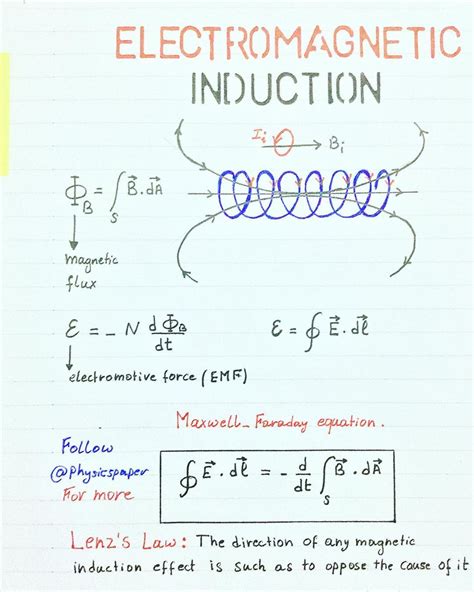 ELECTROMAGNETIC
INDUCTION
I_i B_i
Φ_B = ∫_S B⃗ . dA⃗
magnetic
flux
ℰ = - N dΦ_B/dt ℰ = ∮ E⃗ . dℓ⃗
electromotive force (EMF)
Maxwell_Faraday equation.
Follow
@physicspaper
For more
∮ E⃗ . dℓ⃗ = - d/dt ∫_S B⃗ . dA⃗
Lenz's Law: The direction of any magnetic
induction effect is such as to oppose the cause of it